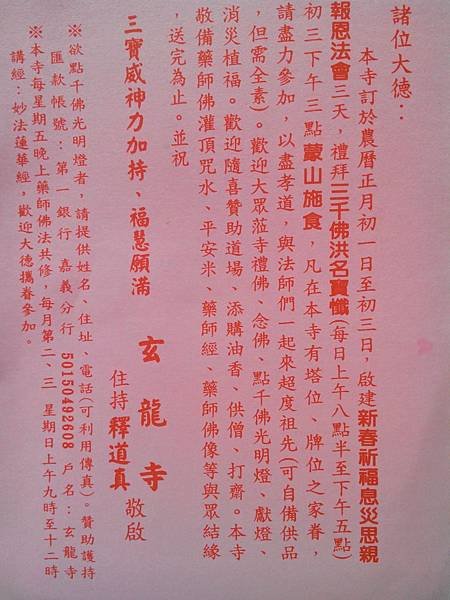 諸位大德：
本寺訂於農曆正月初一日至初三日，啟建新春祈福息災思親
報恩法會三天，禮拜三千佛洪名寶懺(每日上午八點半至下午五點)
初三下午三點蒙山施食，凡在本寺有塔位、牌位之家眷，
請盡力參加，以盡孝道，與法師們一起來超度祖先(可自備供品
，但需全素)。歡迎大眾蒞寺禮佛、念佛、點千佛光明燈、獻燈、
消災植福。歡迎隨喜贊助道場、添購油香、供僧、打齋。本寺
敬備藥師佛灌頂咒水、平安米、藥師經、藥師佛像等與眾結緣
，送完為止。並祝
三寶威神力加持、福慧願滿
玄龍寺
住持釋道真敬啟
※欲點千佛光明燈者，請提供姓名、住址、電話(可利用傳真)。贊助護持
匯款帳號：第一銀行 嘉義分行 50150492608 戶名：玄龍寺
※本寺每星期五晚上藥師佛法共修，每月第二、三 星期日上午九時至十二時
講經：妙法蓮華經，歡迎大德攜眷參加。